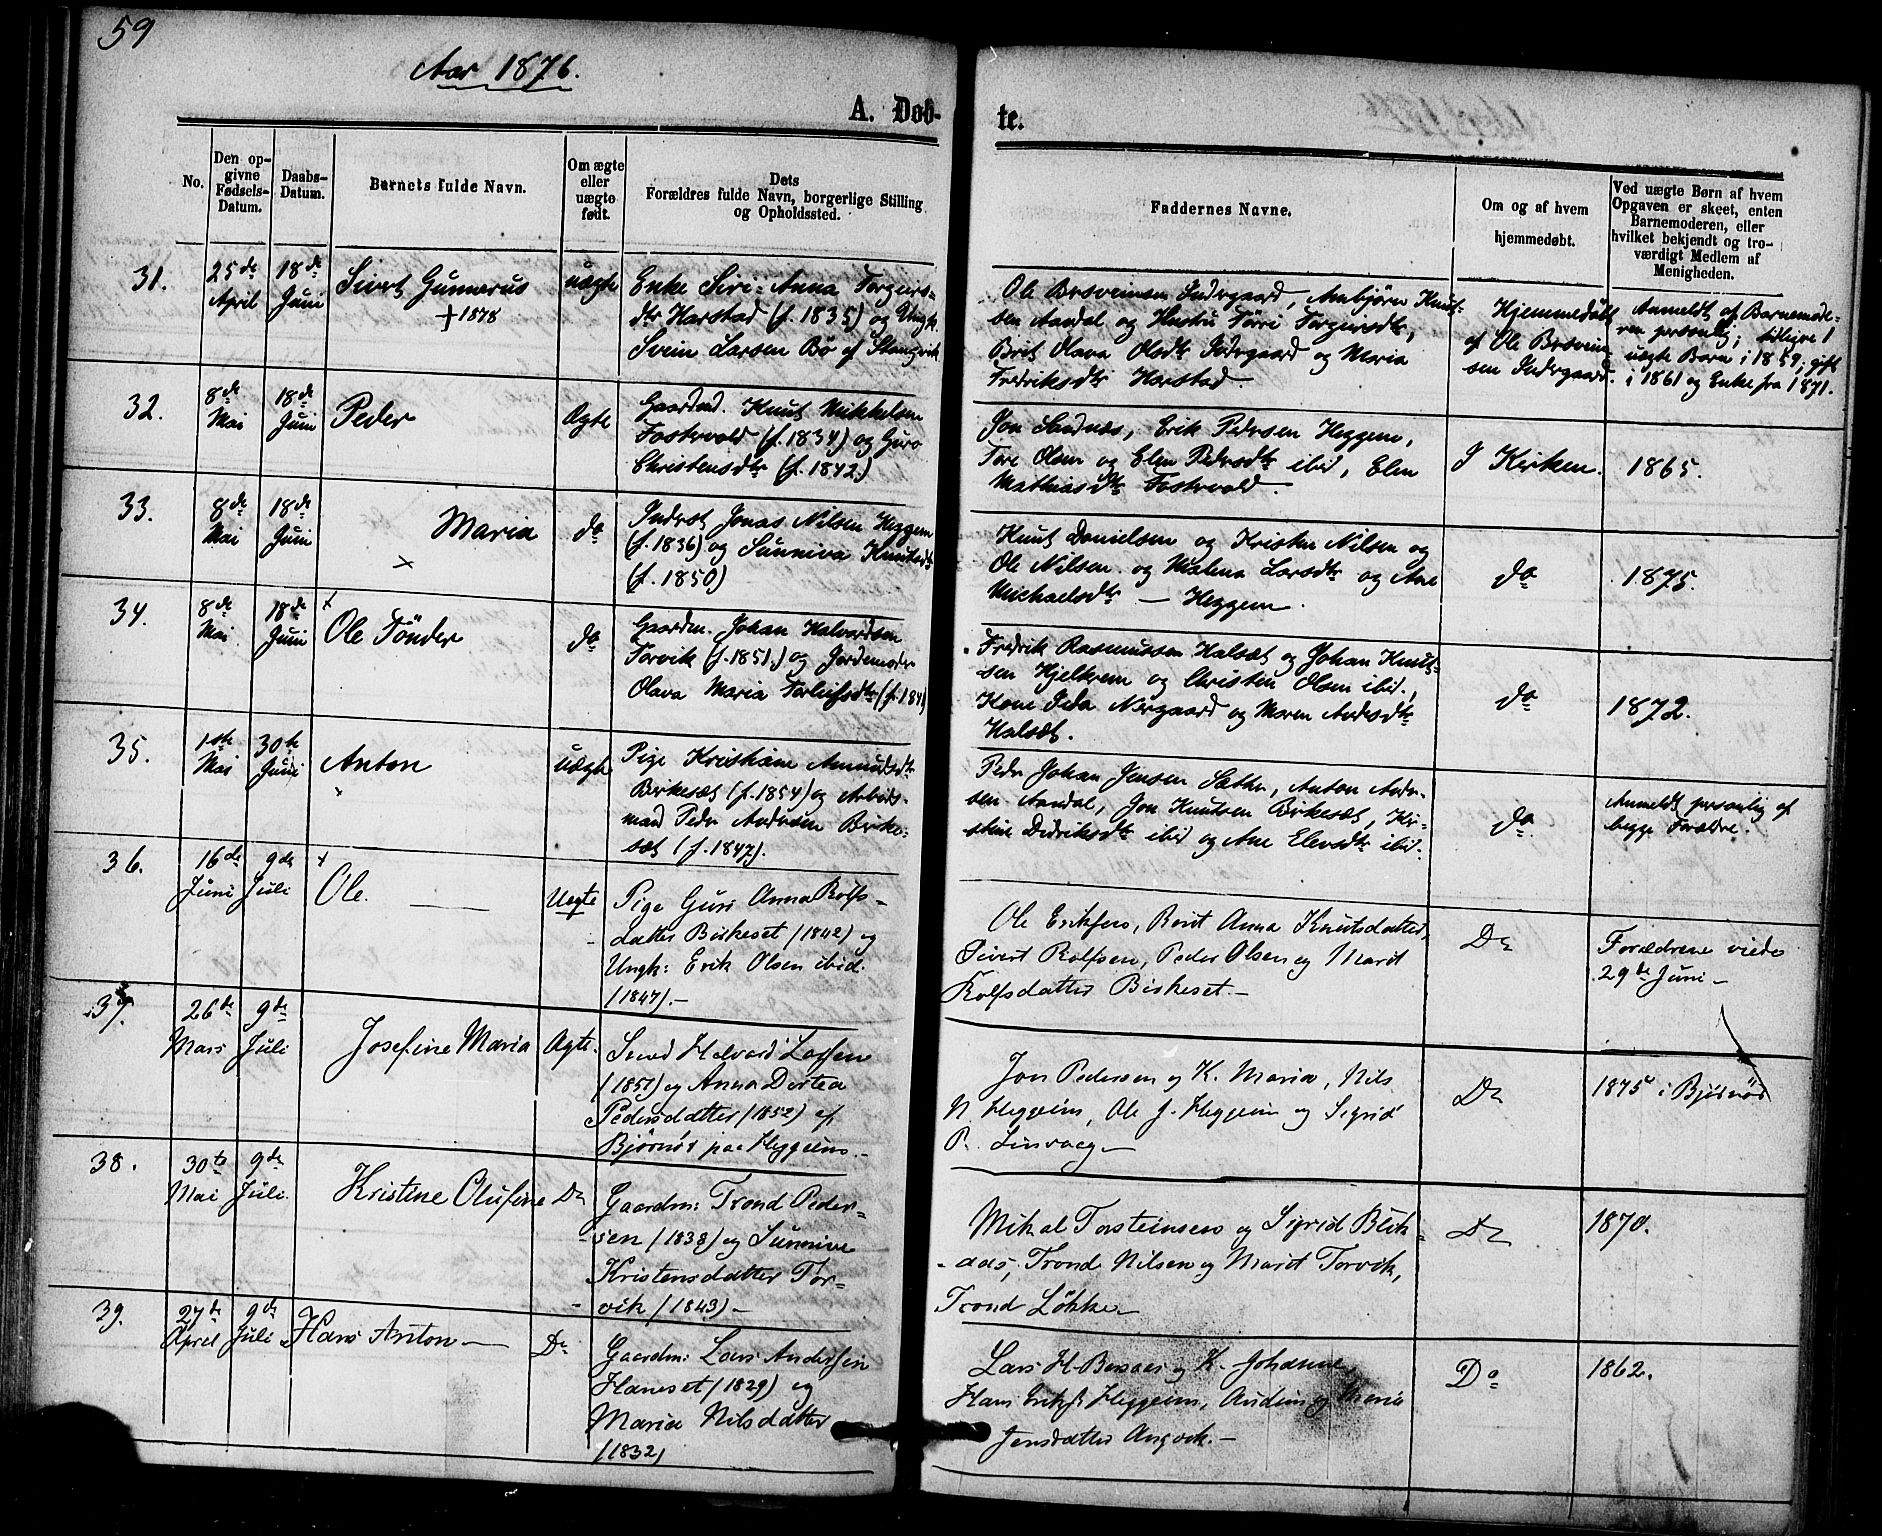 59
Aar 1876.
A. Døb-
te.
No.
Den op-
givne
Fødsels-
Datum.
Daabs-
Datum.
Barnets fulde Navn.
Om ægte
eller
uægte
født.
Dets
Forældres fulde Navn, borgerlige Stilling
og Opholdssted.
Faddernes Navne.
Om og af hvem
hjemmedøbt.
Ved uægte Børn af hvem
Opgaven er skeet, enten
Barnemoderen, eller
hvilket bekjendt og tro-
værdigt Medlem af
Menigheden.
31.
25de
April
18de
Juni
Sivert Gunnerus
+ 1878
uægte
Enke Siri-Anna Torgers-
dtr Harstad (f. 1835) og Ungk.
Svein Larsen Bø af Stangvik
Ole Bosveinsen Indergaard, Ambjørn Knut-
sen Aandal og Hustru Torgersdtr,
Brit Olava Olsdtr Indergaard og Maria
Fredriksdtr Harstad
Hjemmedøbt
af Ole Bosvein-
sen Indergaard.
Anmeldt af Barnemode-
ren personlig; tidligere 1
uægte Barn i 1859, gift
i 1861 og Enke fra 1871.
32.
8de
Mai
18de
Juni
Peder
Ægte
Gaardmd. Knut Mikkelsen
Fostervold (f. 1834) og Guro
Christensdtr (f. 1842)
Jon Sandnæs, Erik Pedersen Heggem,
Tore Olsen og Elen Pedersdtr ibid, Elen
Mathiasdtr Fostervold.
I Kirken.
1865.
33.
8de
Mai
18de
Juni
Maria
x
do
Inderst Jonas Nilsen Heggem
(f. 1836) og Sunniva Knutsdtr
(f. 1850)
Knut Danielsen og Kristen Nilsen og
Ole Nilsen og Malena Larsdtr og Ane
Michaelsdtr — Heggem.
do
1875.
34.
8de
Mai
18de
Juni
x
Ole Tönder
do
Gaardm. Johan Halvordsen
Torvik (f. 1851.) og Jordemoder
Olava Maria Torleifsdtr (f. 1841)
Fredrik Rasmussen Halsæt og Johan Knut-
sen Hjelkrem og Christen Olsen ibid.,
Kone Ida Norgaard og Maren Andersdtr
Halsæt.
do
1872.
35.
1ste
Mai
30te
Juni
Anton
x
uægte
Pige Kristiane Amundsdtr
Birkesæt (f. 1854) og Arbeids-
mand Peder Andersen Birke-
sæt (f. 1847).
Peder Johan Jensen Sæther, Anton Ander-
sen Aandal, Jon Knutsen Birkesæt, Kri-
stine Didriksdtr ibid og Ane Elevsdtr ibid.
do
Anmeldt personlig af
begge Forældre.
36.
16de
Juni
9de
Juli
x
Ole.
Uægte
Pige Guri Anna Rolfs-
datter Birkeset (1842) og
Ungk: Erik Olsen ibid.
(1847).-
Ole Eriksen, Berit Anna Knutsdatter,
Sivert Rolfsen, Peder Olsen og Marit
Rolfsdatter Birkeset.-
Do
Forældrene viede
29de Juni -
37.
26de
Mars
9de
Juli
Josefine Maria
Ægte.
Halvard Larsen
(1851) og Anna Dortea
Pedersdatter (1852) af
Bjørnør paa Heggeim.-
Jon Pedersen og K. Maria, Nils
N. Heggeim, Ole J. Heggeim og Sigrid
P. Linvaag-
Do
1875 i Bjørnør
38.
30te
Mai
9de
Juli
Kristine Olufine
Do
Gaardm: Trond Peder-
sen (1838) og Sunnive
Kristensdatter Tor-
vik (1843)-
Mikal Torsteinsen og Sigrid Blik-
aas, Trond Nilsen og Marit Torvik,
Trond Løkken
Do
1870.
39.
27de
April
9de
Juli
Hans Anton
Do
Gaardm: Lars Andersen
Haneset (1829) og
Maria Nilsdatter
(1832)
Lars H. og K. Johanne,
Hans Eriks. Heggeim, Audun og Maria
Jensdatter Angvik.-
Do
1862.